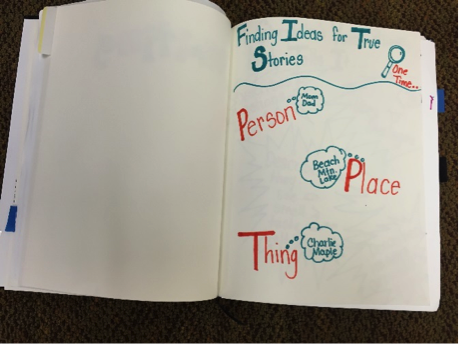 Finding Ideas for True
Stories
One
Time..
Person
Mom
Dad
Beach
Mtn.
Lake
Place
Thing
Charlie
Maple